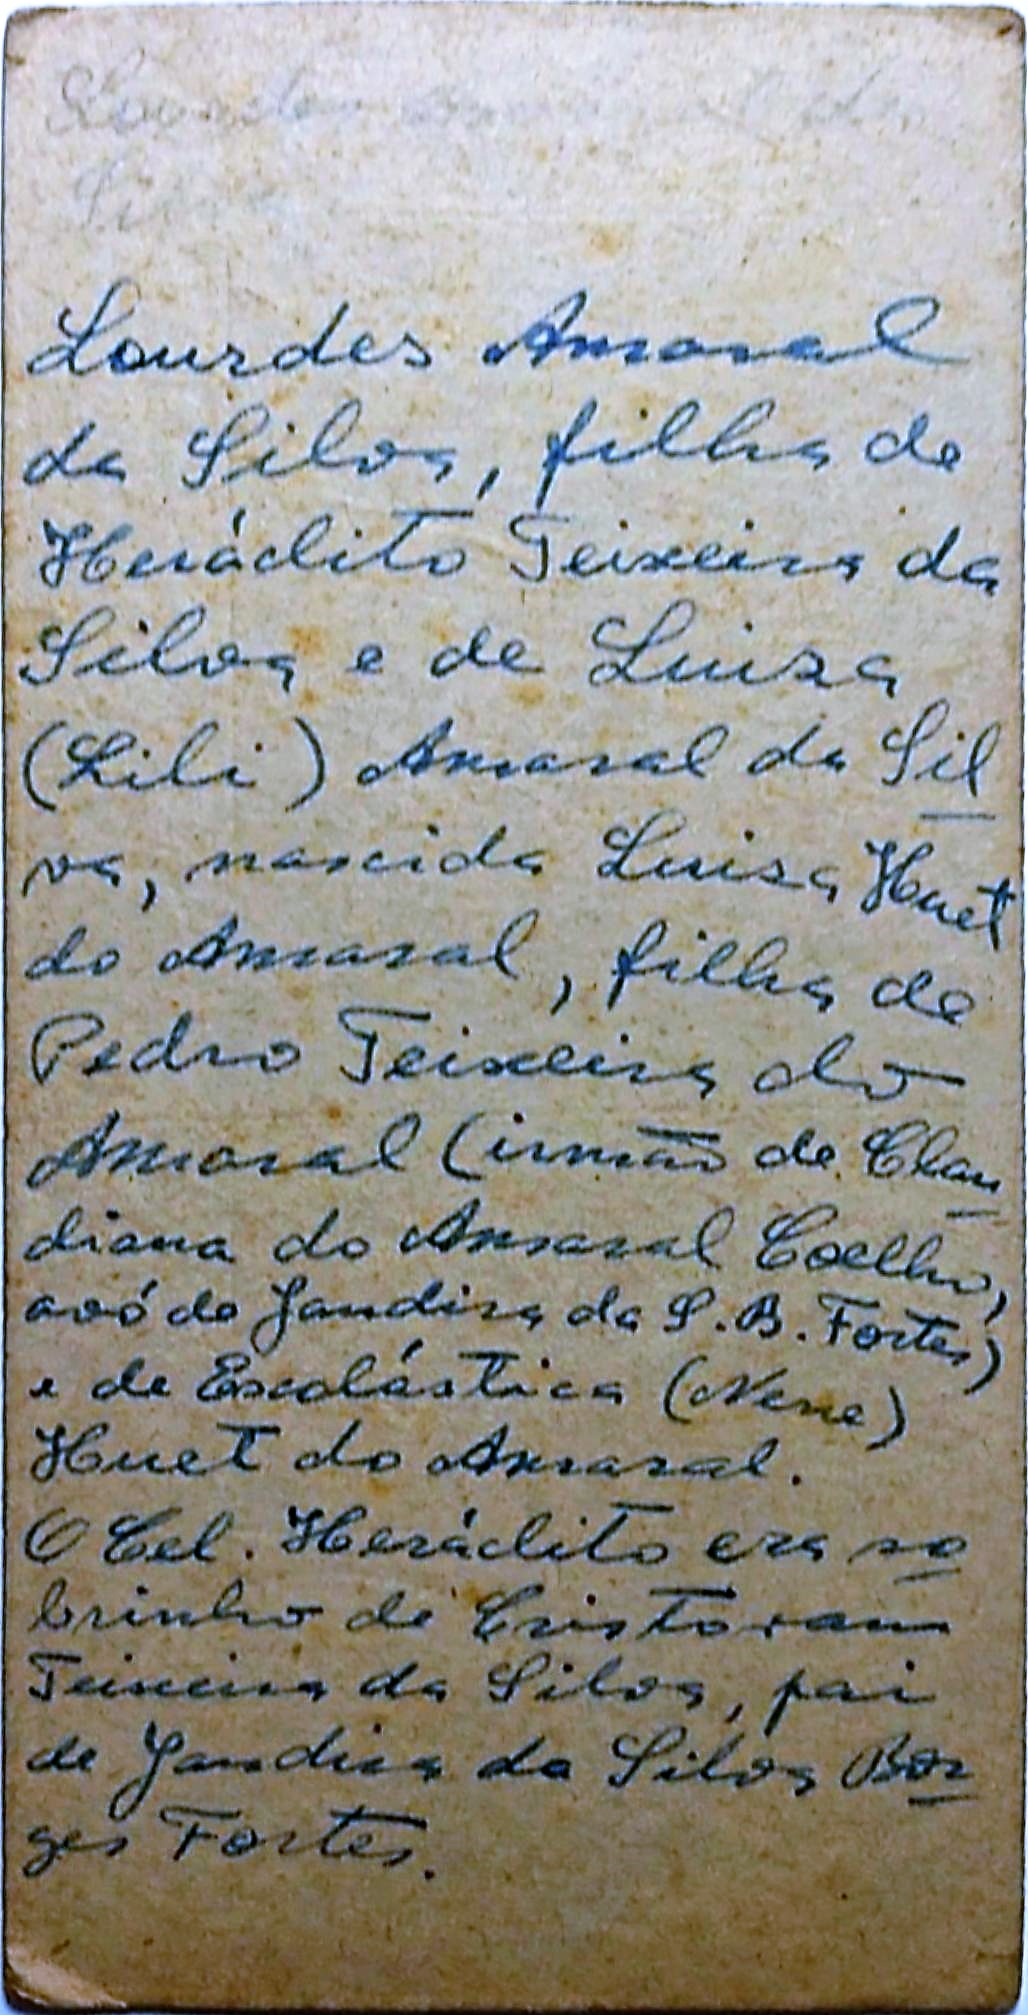 Lourdes
Silva
Lourdes Amaral
da Silva, filha de
Heráclito Teixeira da
Silva e de Luiza
(Lili) Amaral da Sil
va, nascida Luiza Huet
do Amaral, filha de
Pedro Teixeira do
Amaral (irmão de Clau
diana do Amaral Coelho,
avó de Jandira da S. B. Fortes)
e de Escolástica (Nene)
Huet do Amaral.
O Cel. Heráclito era so
brinho de Cristovam
Teixeira da Silva, pai
de Jandira da Silva Bor
ges Fortes.